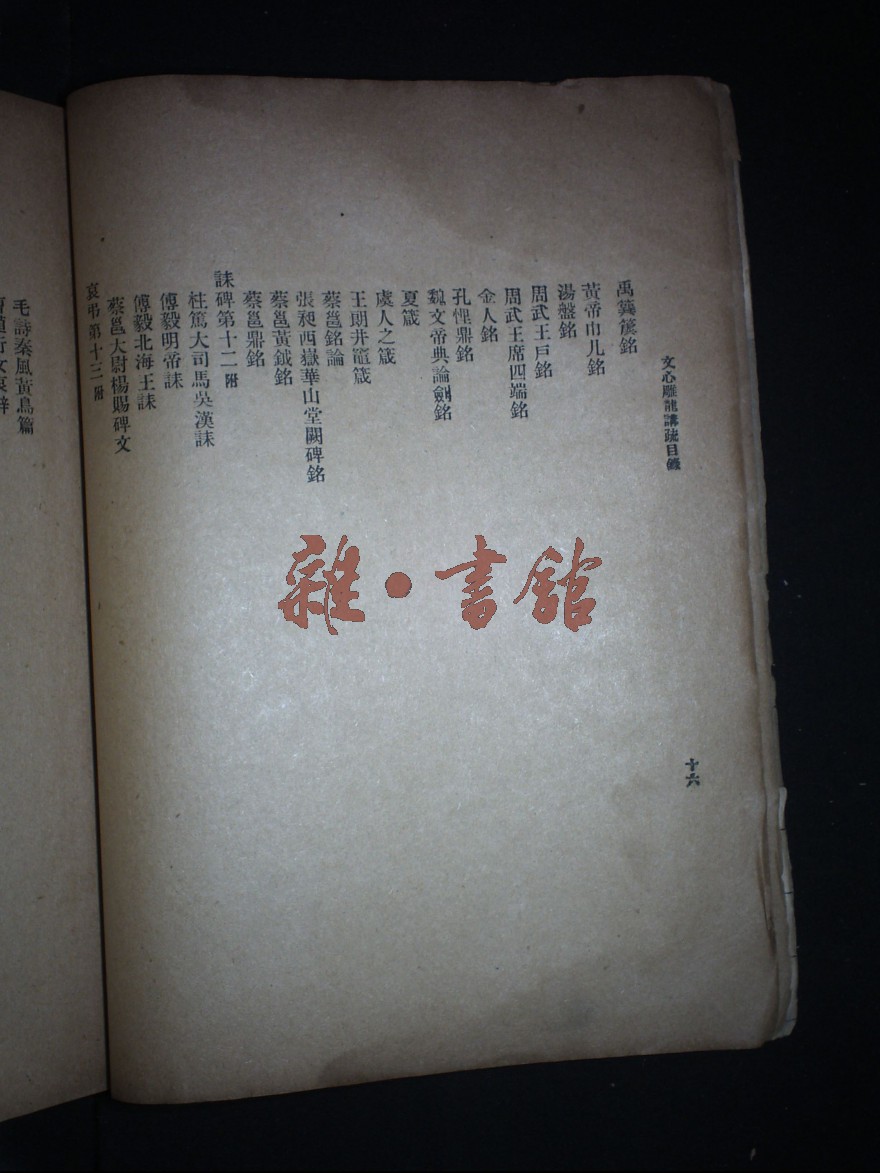 文心雕龍講疏目錄
十六
禹簨簴銘
黃帝巾几銘
湯盤銘
周武王戶銘
周武王席四端銘
金人銘
孔悝鼎銘
魏文帝典論劍銘
夏箴
虞人之箴
王朗井竈箴
蔡邕銘論
張昶西嶽華山堂闕碑銘
蔡邕黃鉞銘
蔡邕鼎銘
誄碑第十二附
杜篤大司馬吳漢誄
傅毅明帝誄
傅毅北海王誄
蔡邕太尉楊賜碑文
哀弔第十三附
毛詩秦風黃鳥篇
行女哀辭
雜·書館